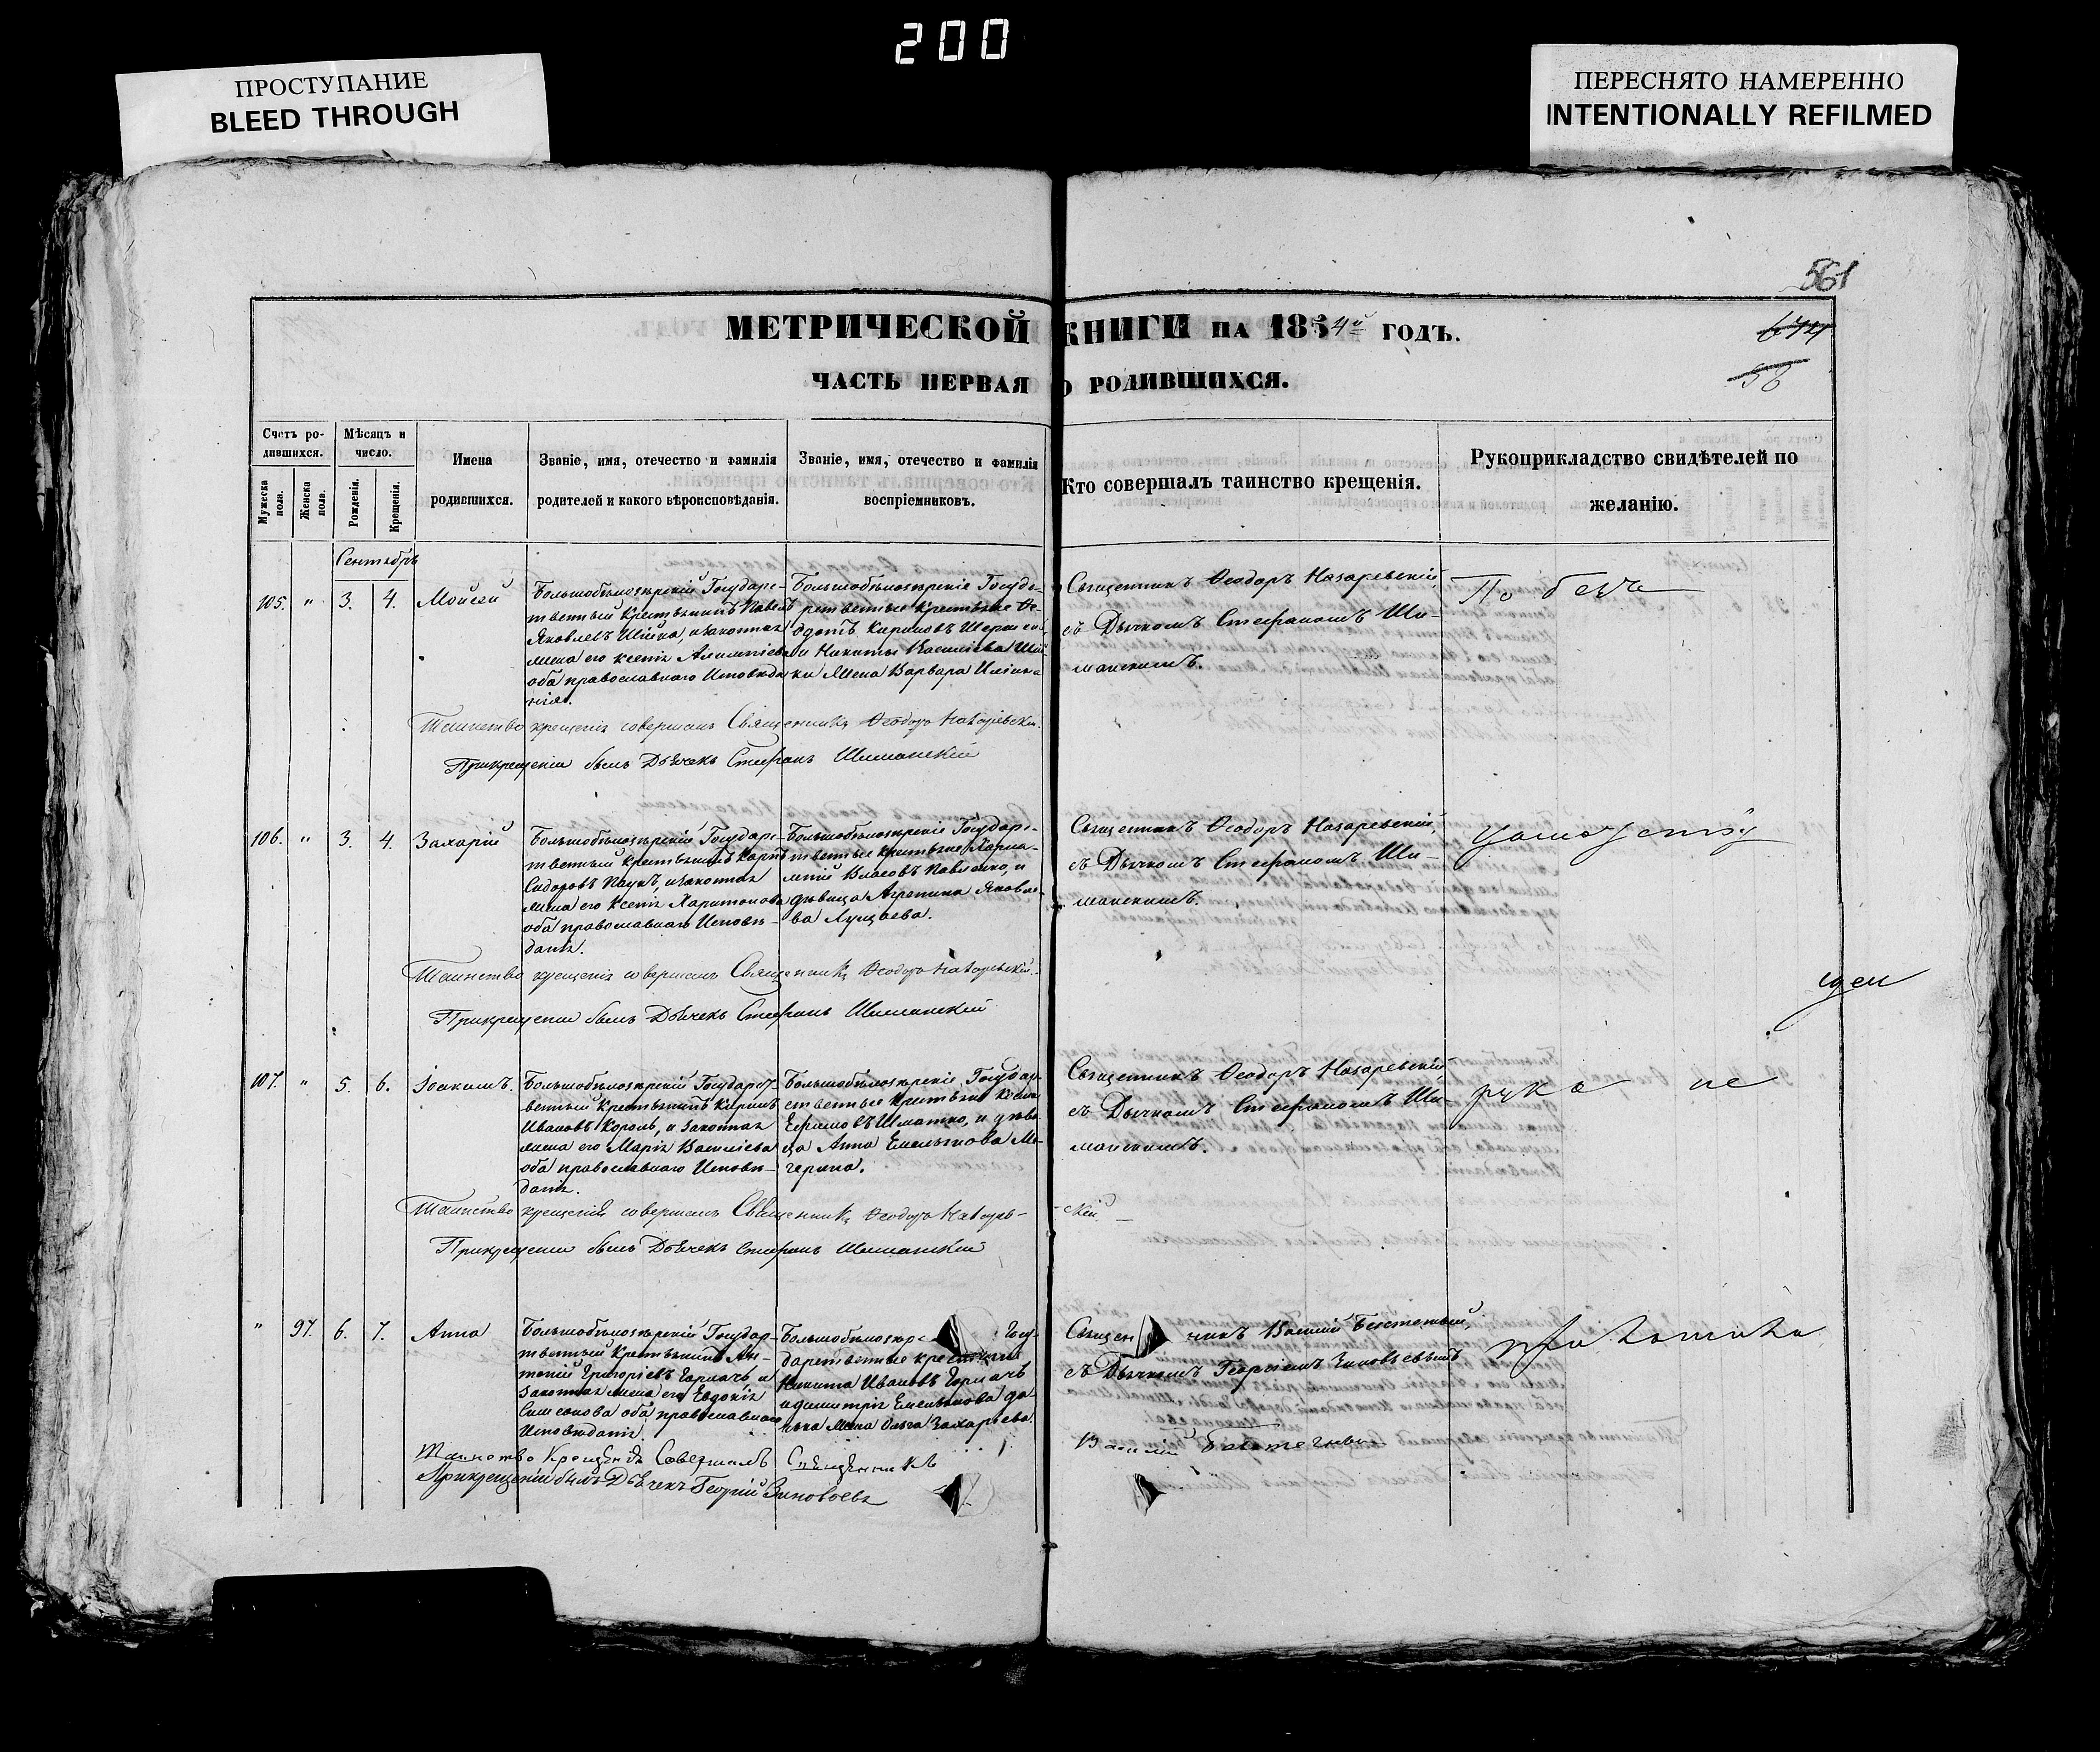 200
ПРОСТУПАНИЕ
BLEED THROUGH
ПЕРЕСНЯТО НАМЕРЕННО
INTENTIONALLY REFILMED
561
МЕТРИЧЕСКОЙ КНИГИ НА 1854й ГОДЪ.
58
ЧАСТЬ ПЕРВАЯ О РОДИВШИХСЯ.
Счетъ родившихся.
Мужеска пола.
Женска пола.
Мѣсяцъ и число.
Рожденія.
Крещенія.
Имена родившихся.
Званіе, имя, отечество и фамилія
родителей и какого вѣроисповѣданія.
Званіе, имя, отечество и фамилія
воспріемниковъ.
Кто совершалъ таинство крещенія.
Рукоприкладство свидѣтелей по
желанію.
Сентябрь
105. " 3. 4. Мойсей
Большобѣлозѣрскій Государс-
твенный Крестьянинъ Павелъ
Яковлевъ Шійка, и законная
жена его Ксенія Алимпіева
оба православнаго Исповѣда
нія.
Большобѣлозѣрскіе Госуда-
рственные Крестьяне Ѳе-
одотъ Кириловъ
и Никиты Василіева Шій-
ки жена Варвара Иліина
Священникъ Ѳеодоръ Назаревскій,
съ Дьячкомъ Стефаномъ Ши-
манскимъ.
Таинство крещенія совершалъ Священникъ Ѳеодоръ Назаревскій.
Прикрещеніи былъ Дьячекъ Стефанъ Шиманскій
106. " 3. 4. Захарій
Большобѣлозѣрскій Государс-
твенный Крестьянинъ Карпъ
Сидоровъ Паукъ, и законная
жена его Ксенія Харитонова
оба православнаго Исповѣ-
данія.
Большобѣлозѣрскіе Государс-
твенные Крестьяне Харла-
мпій Власовъ Павленко, и
дѣвица Агрепина Яковле-
ва Луцаева.
Священникъ Ѳеодоръ Назаревскій,
съ Дьячкомъ Стефаномъ Ши-
манскимъ.
Таинство крещенія совершалъ Священникъ Ѳеодоръ Назаревскій.
Прикрещеніи былъ Дьячекъ Стефанъ Шиманскій
107. " 5. 6. Іоакимъ.
Большобѣлозѣрскій Государст-
венный Крестьянинъ Кирилъ
Ивановъ Король, и законная
жена его Марія Василіева
оба православнаго Исповѣ-
данія.
Большобѣлозѣрскіе Государ-
ственные Крестьяне Косма
Ефимовъ Шматко, и дѣви
ца Анна Емельянова Ме-
герина.
Священникъ Ѳеодоръ Назаревскій,
съ Дьячкомъ Стефаномъ Ши-
манскимъ.
рука не
Таинство крещенія совершалъ Священникъ Ѳеодоръ Назарев-
скій.
Прикрещеніи былъ Дьячекъ Стефанъ Шиманскій
" 97. 6. 7. Анна
Большобѣлозѣрскій Государ-
твенный Крестьянинъ Ан-
тоній Григоріевъ Гормачъ, и
Законная жена его Евдокія
Симеонова оба православнаго
Исповѣданія.
Большобѣлозѣрс Госу-
дарственные крестьяне
Никита Ивановъ Гормачъ
и Димитрія Емельянова
жена Ольга Захарьева.
Священникъ Василій
съ Дьячкомъ Георгіемъ Зиновьевымъ
Таинство Крещенія Совершалъ Священникъ
Василій
Прикрещеніи былъ Дьячекъ Георгій Зиновьевъ